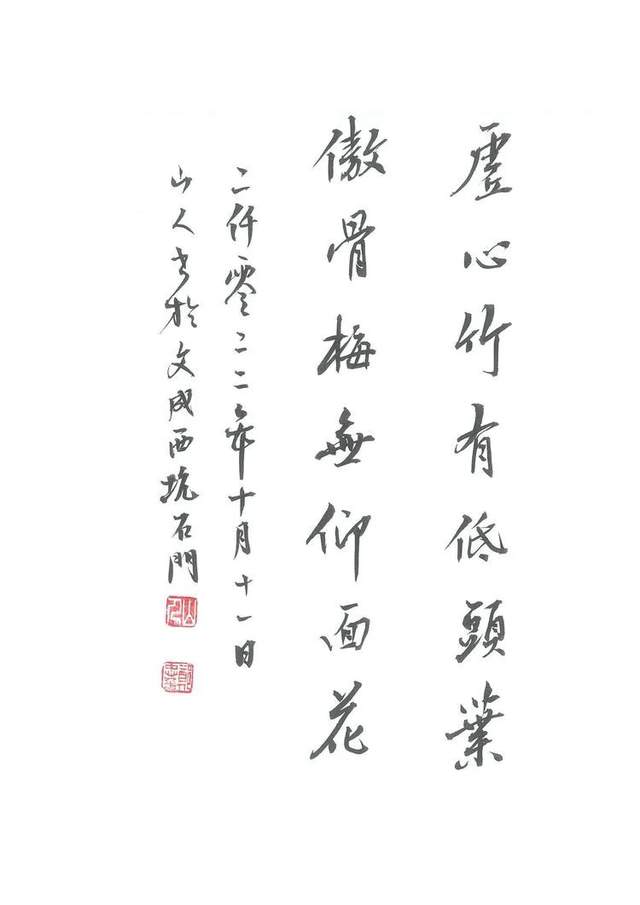 虛心竹有低頭葉
傲骨梅無仰面花
二仟零二二年十月十一日
山人書於文成西坑石門
山人